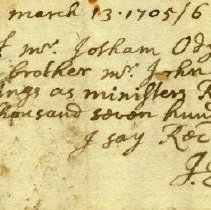 march 13. 1705/6
mr. Jotham Od
brother mr. John
ings as ministers R
housand seven hun
I say Rec
J.